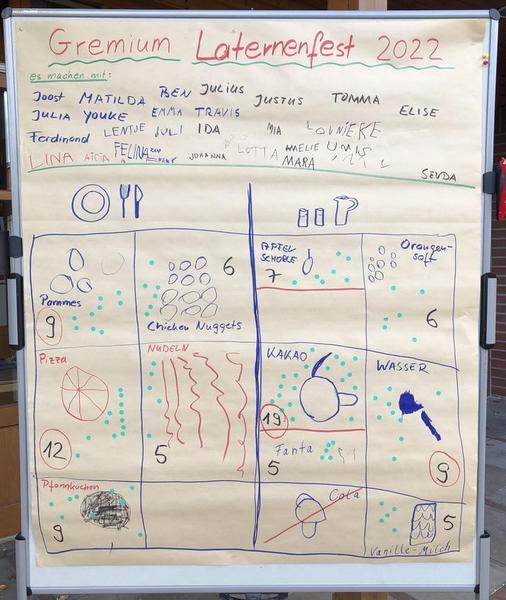 Gremium Laternenfest 2022
es machen mit:
Joost MATILDA BEN Julius Justus TOMMA ELISE
JULIA YOUKE EMMA TRAVIS
Ferdinand LENTJE JULI IDA MIA
LINA FELINA JOHANNA LOTTA AMELIE
MARA
SEVDA
Pommes
9
6
Chicken Nuggets
APFEL
SCHORLE
7
Orangen-
saft
6
Pizza
12
NUDELN
5
KAKAO
19
WASSER
9
Fanta
5
Pfannkuchen
9
Cola
5
Vanille-Milch